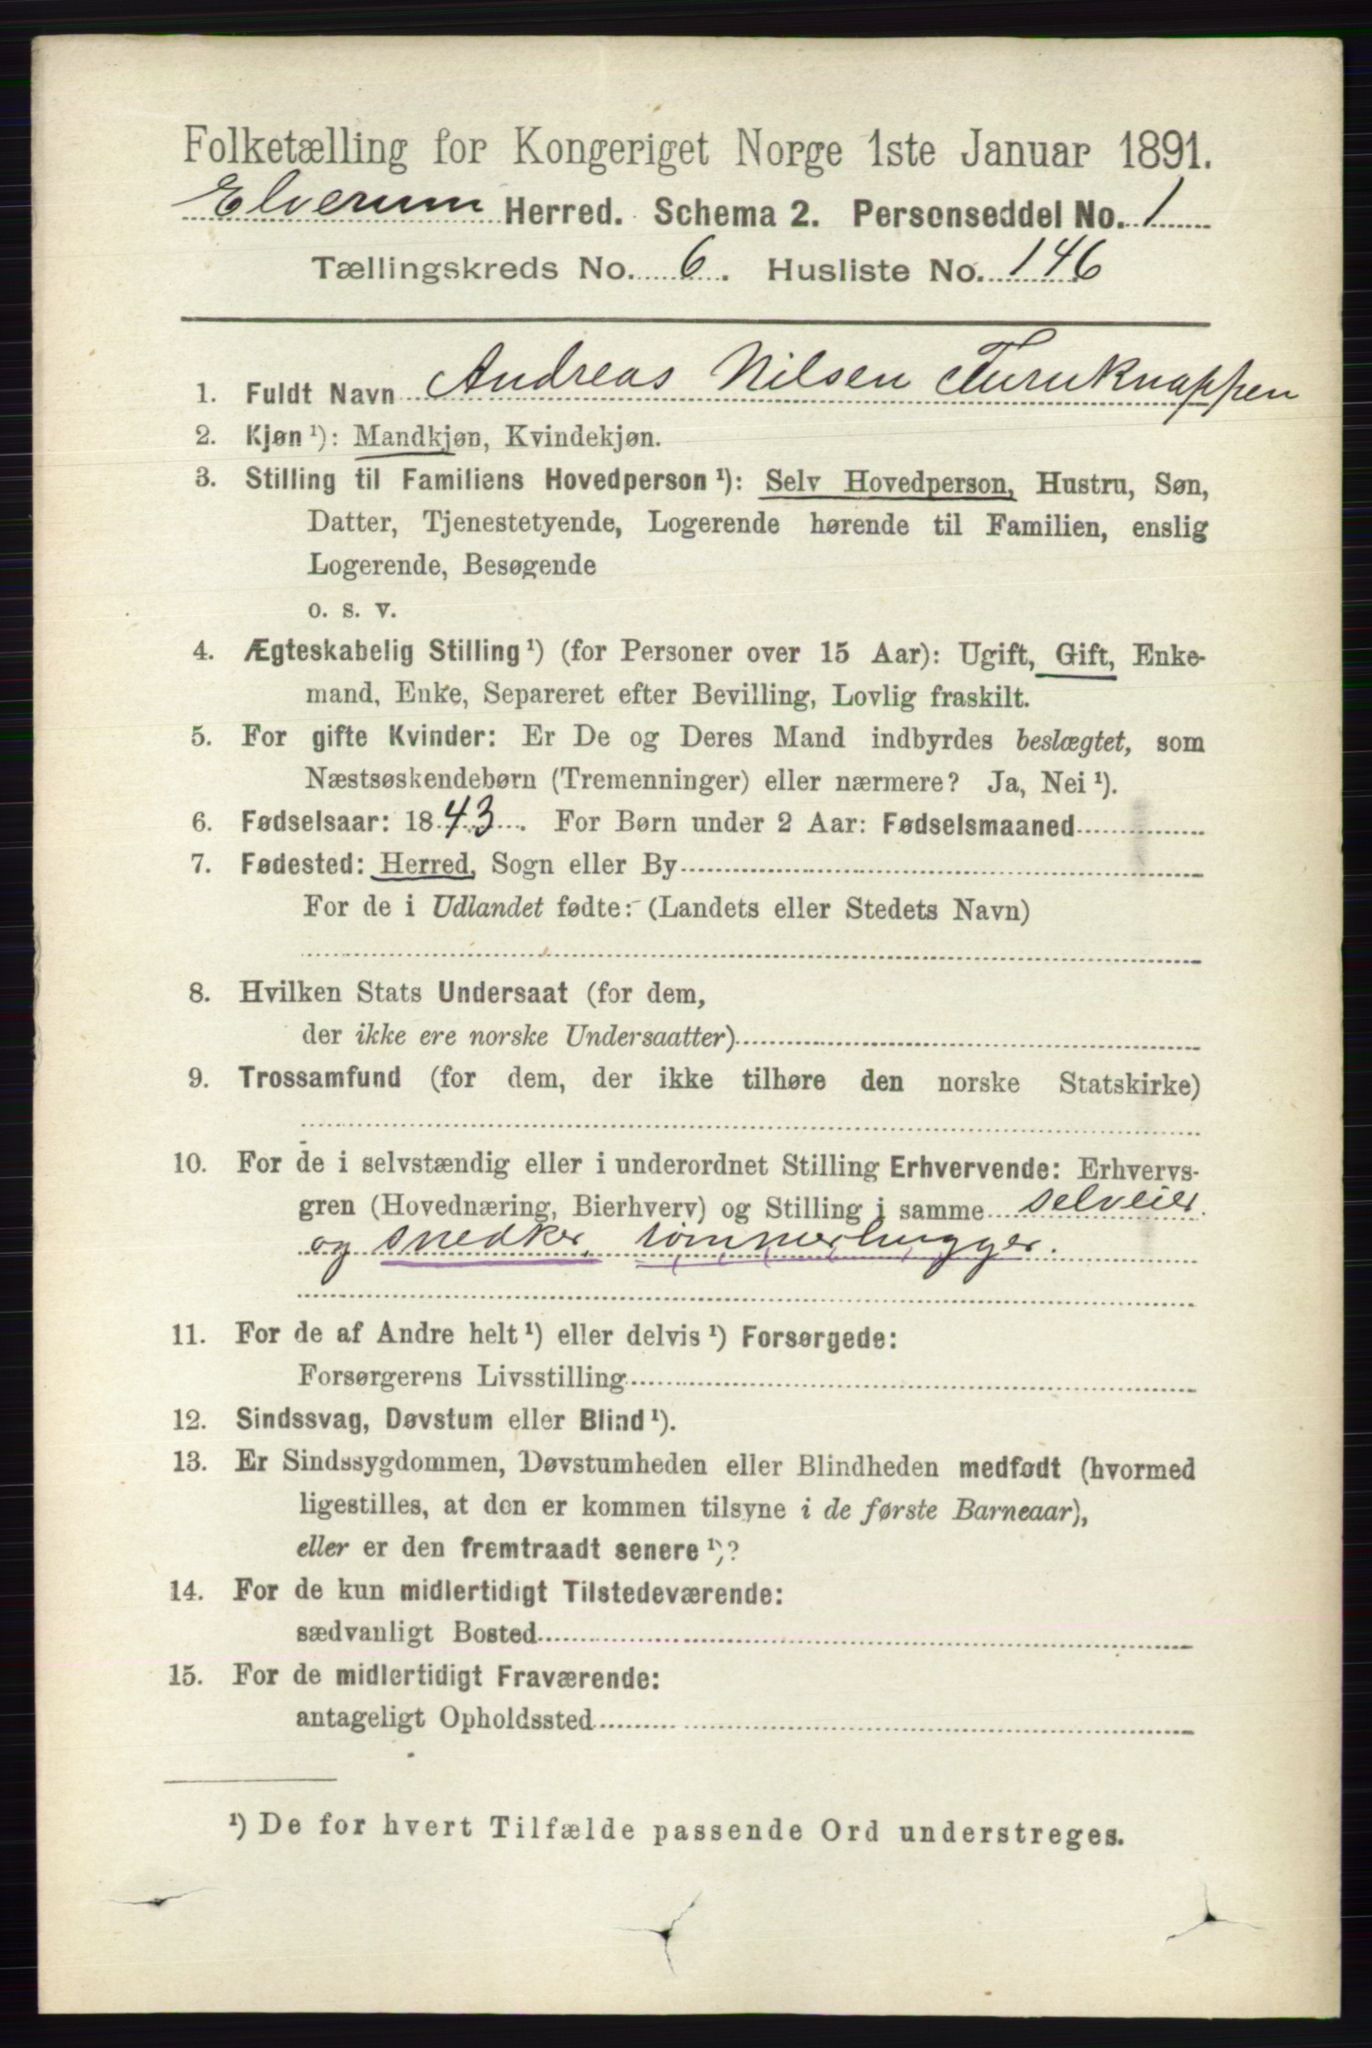 Folketælling for Kongeriget Norge 1ste Januar 1891.
Elverum Herred. Schema 2. Personseddel No. 1
Tællingskreds No. 6. Husliste No. 146
1. Fuldt Navn Andreas Nilsen Furuknappen
2. Kjøn ¹): Mandkjøn, Kvindekjøn.
3. Stilling til Familiens Hovedperson ¹): Selv Hovedperson, Hustru, Søn,
Datter, Tjenestetyende, Logerende hørende til Familien, enslig
Logerende, Besøgende
o. s. v.
4. Ægteskabelig Stilling ¹) (for Personer over 15 Aar): Ugift, Gift, Enke-
mand, Enke, Separeret efter Bevilling, Lovlig fraskilt.
5. For gifte Kvinder: Er De og Deres Mand indbyrdes beslægtet, som
Næstsøskendebørn (Tremenninger) eller nærmere? Ja, Nei ¹).
6. Fødselsaar: 1843. For Børn under 2 Aar: Fødselsmaaned
7. Fødested: Herred, Sogn eller By
For de i Udlandet fødte: (Landets eller Stedets Navn)
8. Hvilken Stats Undersaat (for dem,
der ikke ere norske Undersaatter)
9. Trossamfund (for dem, der ikke tilhøre den norske Statskirke)
10. For de i selvstændig eller i underordnet Stilling Erhvervende: Erhvervs-
gren (Hovednæring, Bierhverv) og Stilling i samme selveier
og snedker, tømmerhugger.
11. For de af Andre helt ¹) eller delvis ¹) Forsørgede:
Forsørgerens Livsstilling
12. Sindssvag, Døvstum eller Blind ¹).
13. Er Sindssygdommen, Døvstumheden eller Blindheden medfødt (hvormed
ligestilles, at den er kommen tilsyne i de første Barneaar),
eller er den fremtraadt senere ¹)?
14. For de kun midlertidigt Tilstedeværende:
sædvanligt Bosted
15. For de midlertidigt Fraværende:
antageligt Opholdssted
¹) De for hvert Tilfælde passende Ord understreges.